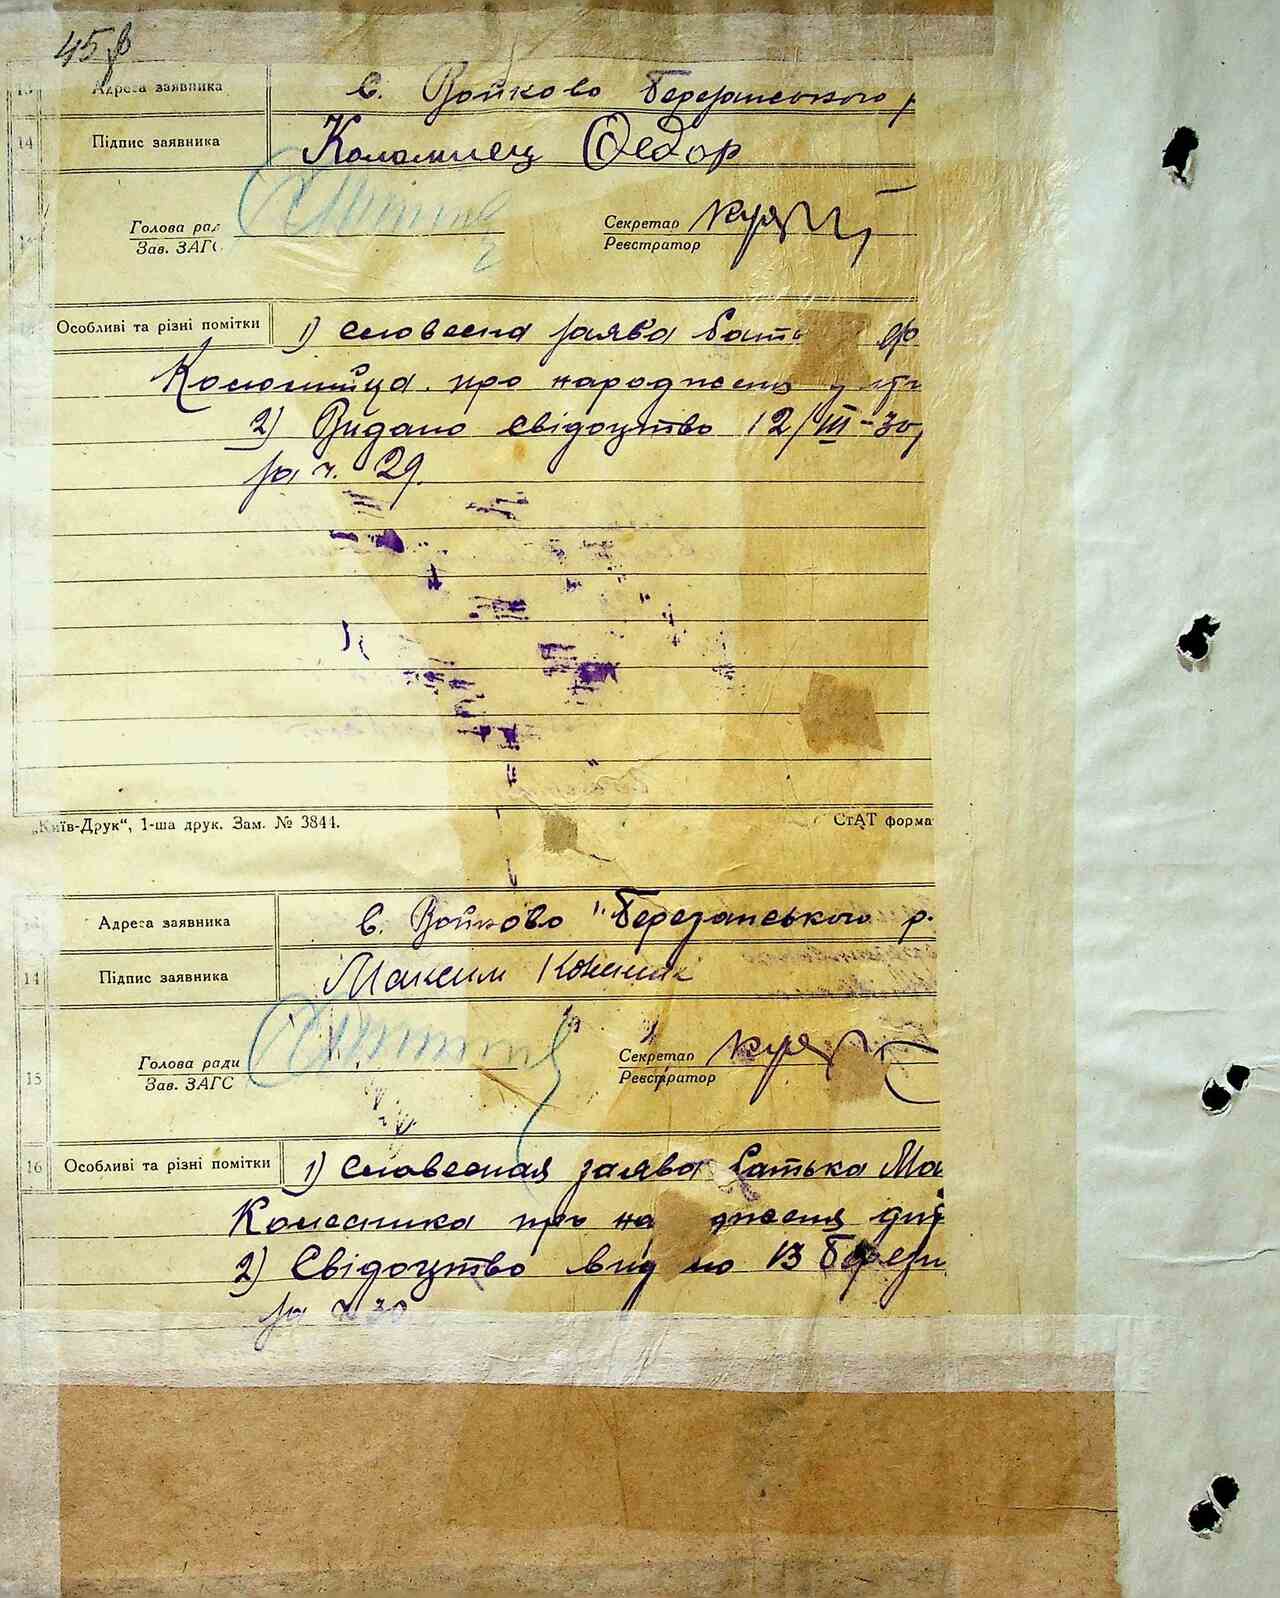 45
13 Адреса заявника с. Войково Березанського р
14 Підпис заявника Коломиец Федор
Голова рад Секретар
Зав. ЗАГС Реєстратор
Особливі та різні помітки 1) словесна заява бать
про народжен
2) Видано свідоцтво 12/III-30
за ч. 29.
„Київ-Друк“, 1-ша друк. Зам. № 3844. СтАТ форма
Адреса заявника с. Войково Березанського р.
14 Підпис заявника Максим
Голова ради Секретар
15 Зав. ЗАГС Реєстратор
16 Особливі та різні помітки 1) словесная заява батька Ма
Колесника про на дження дит
2) Свідоцтво вид но 13 березн
за ч 30